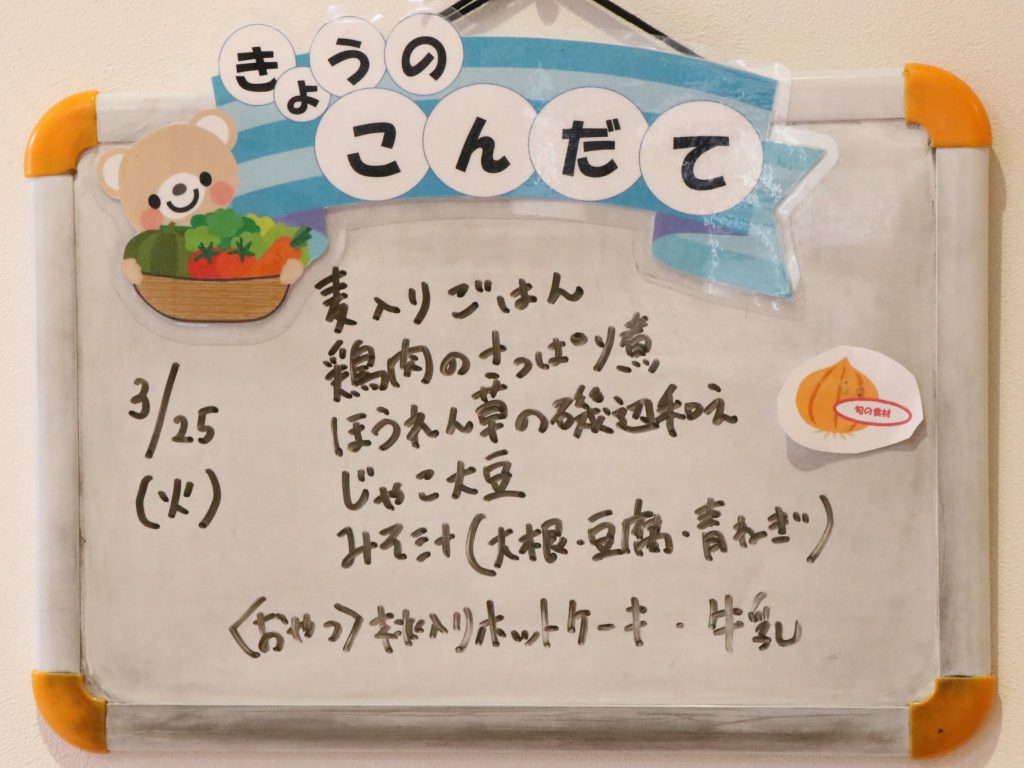 きょうの
こんだて
3/25
(火)
麦入りごはん
鶏肉のさっぱり煮
ほうれん草の磯辺和え
じゃこ大豆
みそ汁(大根・豆腐・青ねぎ)
〈おやつ〉桃入りホットケーキ・牛乳
旬の食材